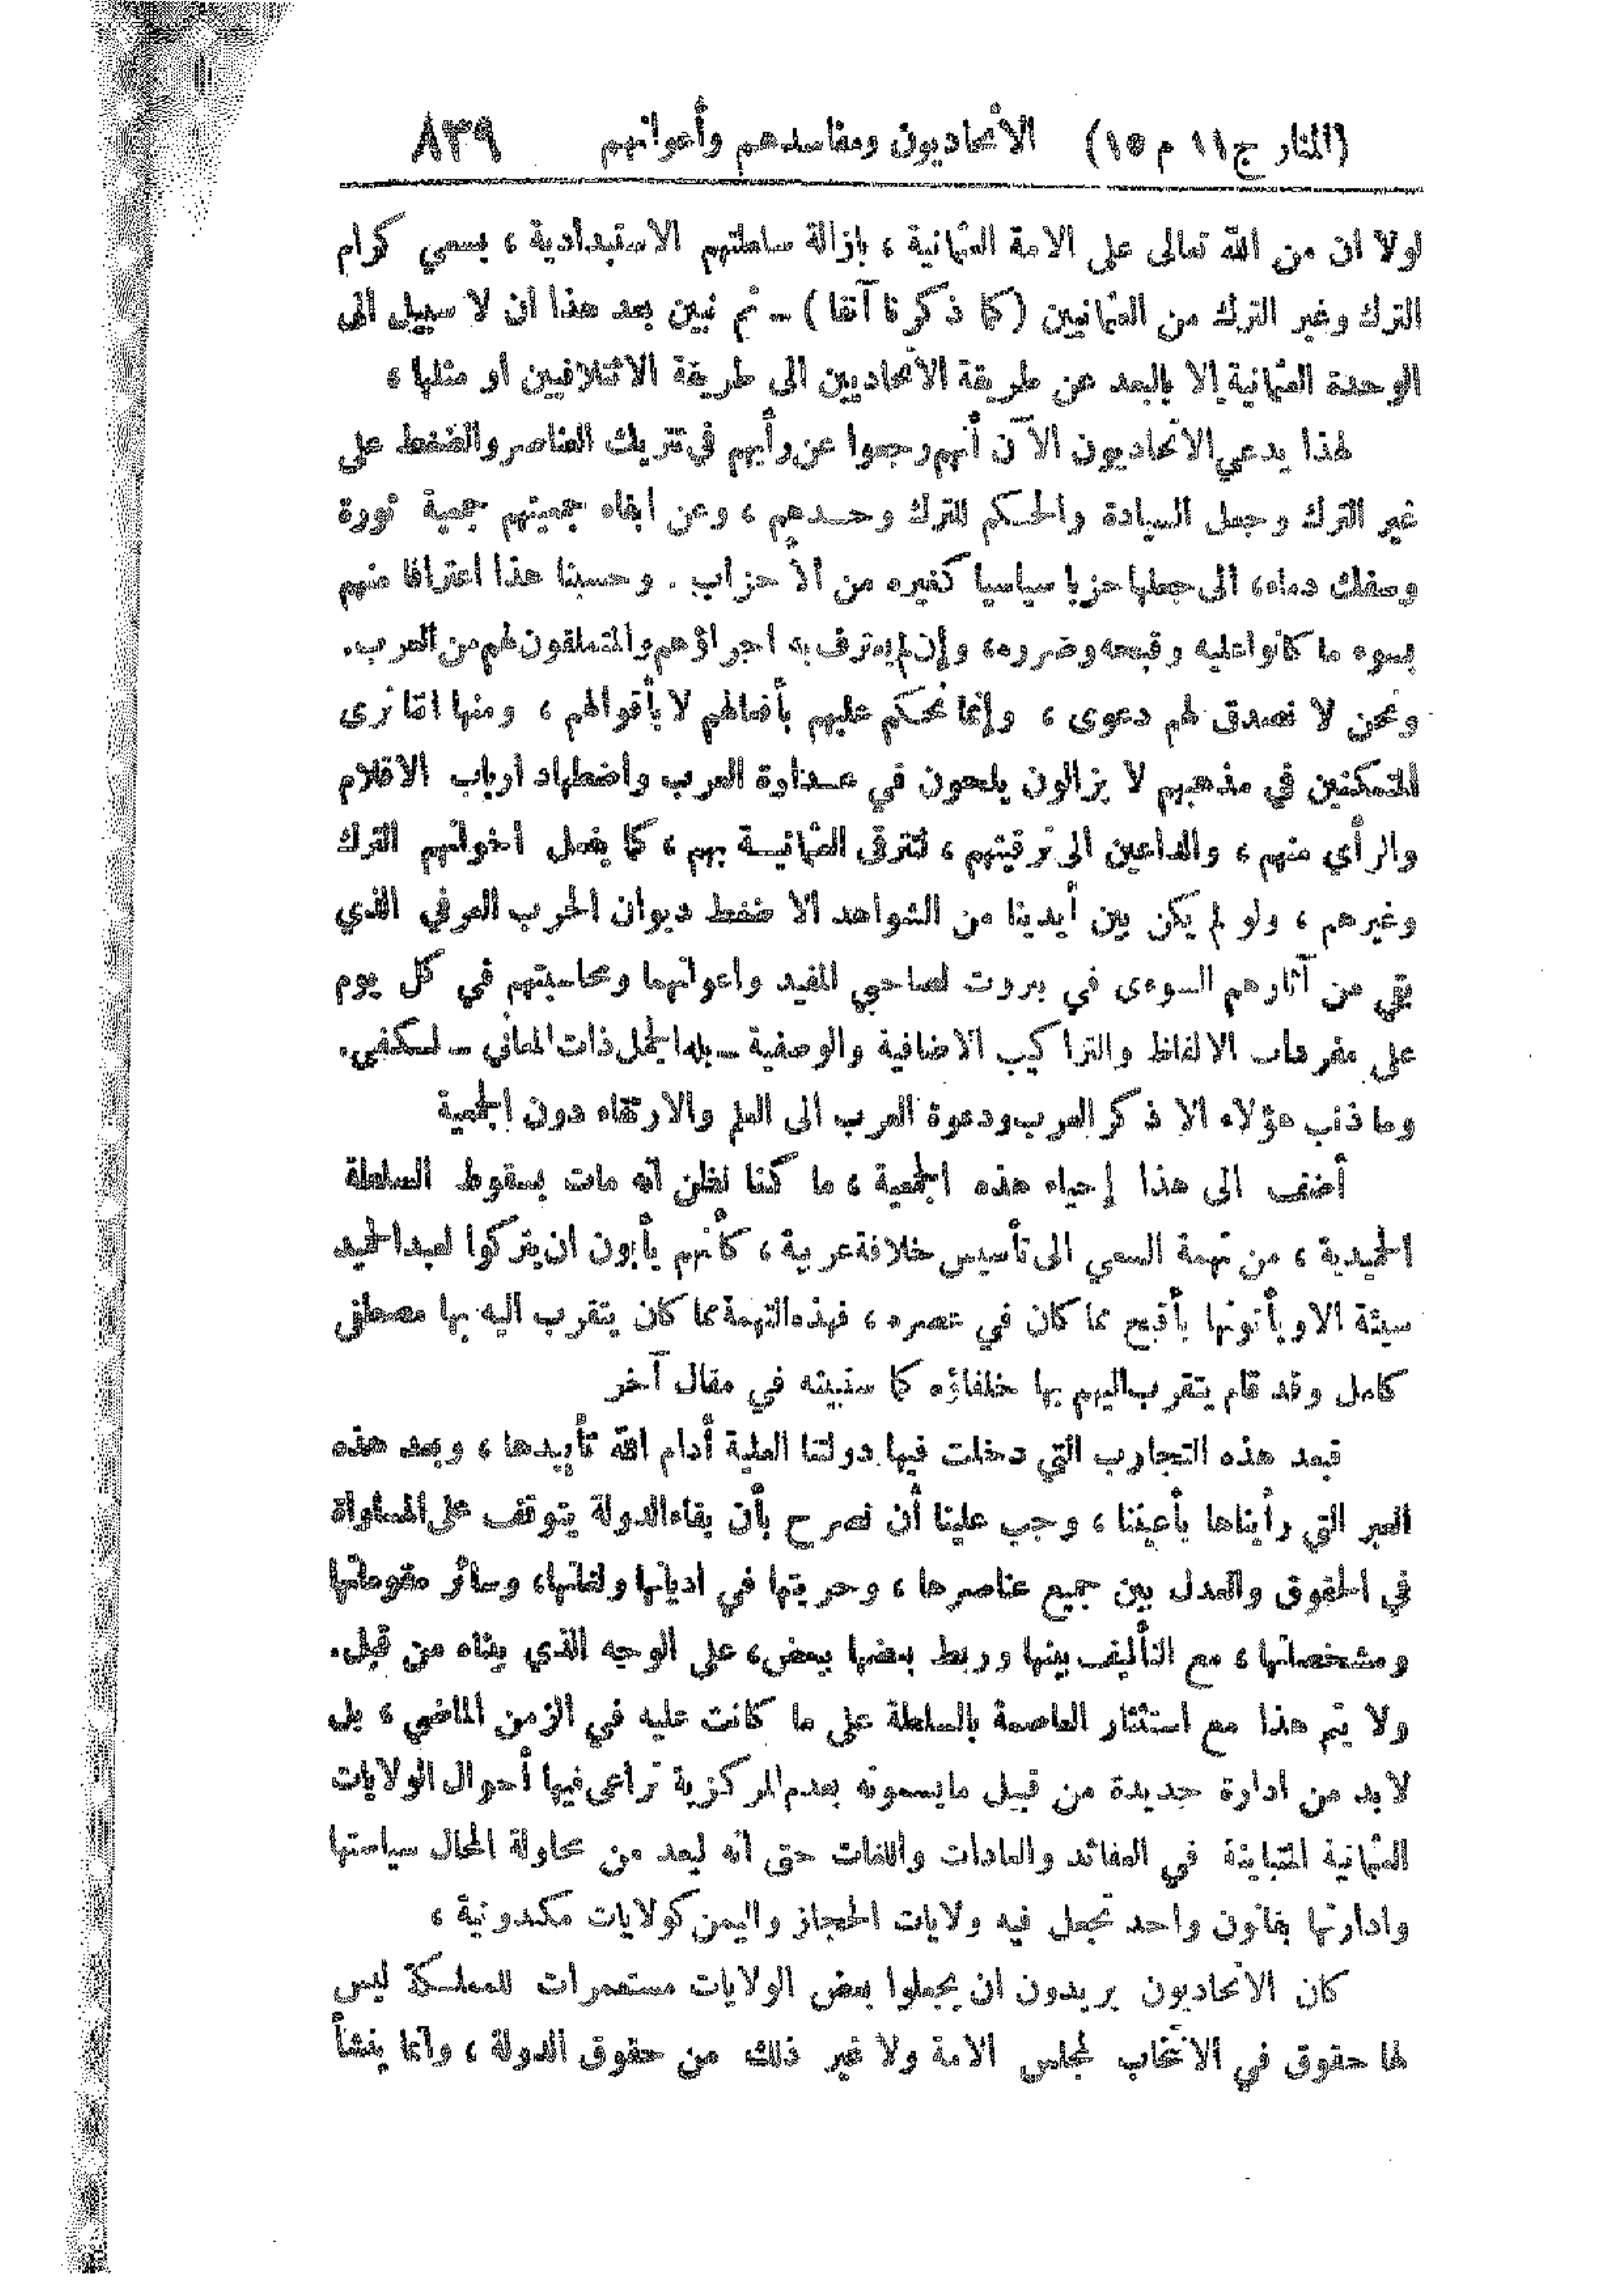 (المنار ج ١١ م ١٥) الاتحاديون ومفاسدهم وأعوانهم ٨٣٩
لولا ان من الله تعالى على الامة العثمانية ، بإزالة سلطتهم الاستبدادية ، بسعي كرام
الترك وغير الترك من العثمانيين ( كما ذكرنا آنفا ) ــ ثم نبين بعد هذا ان لا سبيل الى
الوحدة العثمانية إلا بالبعد عن طريقة الاتحاديين الى طريقة الائتلافيين أو مثلها ،
لهذا يدعي الاتحاديون الآن أنهم رجعوا عن رأيهم في تتريك العناصر والضغط على
غير الترك وجعل السيادة والحكم للترك وحدهم ، وعن ابقاء جمعيتهم جمعية ثورة
وسفك دماء، الى جعلها حزبا سياسيا كغيره من الأحزاب . وحسبنا هذا اعترافا منهم
بسوء ما كانوا عليه وقبحه وضرره، وإن لم يعترف به اجراؤهم والمتملقون لهم من العرب.
ونحن لا نصدق لهم دعوى ، وإنما نحكم عليهم بأفعالهم لا بأقوالهم ، ومنها اننا نرى
المتمكنين في مذهبهم لا يزالون يلحون في عداوة العرب واضطهاد أرباب الاقلام
والرأي منهم ، والداعين الى ترقيتهم ، لتترقى العثمانية بهم ، كما يفعل اخوانهم الترك
وغيرهم ، ولو لم يكن بين أيدينا من الشواهد الا ضغط ديوان الحرب العرفي الذي
بقي من آثارهم السوءى في بيروت لصاحبي المفيد واعوانهما ومحاسبتهم في كل يوم
على مفردات الالفاظ والتراكيب الاضافية والوصفية ــ بله الجمل ذات المعاني ــ لكفى.
وما ذنب هؤلاء الا ذكر العرب ودعوة العرب الى العلم والارتقاء دون الجمعية
أضف الى هذا إحياء هذه الجمعية ، ما كنا نظن انه مات بسقوط السلطة
الحميدية ، من تهمة السعي الى تأسيس خلافة عربية ، كأنهم يأبون ان يتركوا لعبد الحميد
سيئة الا ويأتونها بأقبح مما كان في عصره ، فهذه التهمة مما كان يتقرب اليه بها مصطفى
كامل وقد قام يتقرب اليهم بها خلفاؤه كما سنبينه في مقال آخر
فبعد هذه التجارب التي دخلت فيها دولتنا العلية أدام الله تأييدها ، وبعد هذه
العبر التي رأيناها بأعيننا ، وجب علينا أن نصرح بأن بقاء الدولة يتوقف على المساواة
في الحقوق والعدل بين جميع عناصرها ، وحريتها في اديانها ولغاتها، وسائر مقوماتها
ومشخصاتها ، مع التأليف بينها وربط بعضها ببعض، على الوجه الذي بيناه من قبل.
ولا يتم هذا مع استئثار العاصمة بالسلطة على ما كانت عليه في الزمن الماضي ، بل
لا بد من ادارة جديدة من قبيل ما يسمونه بعدم المركزية تراعى فيها أحوال الولايات
العثمانية المتباينة في العقائد والعادات واللغات حتى انه ليعد من محاولة المحال سياستها
وادارتها بقانون واحد تجعل فيه ولايات الحجاز واليمن كولايات مكدونية ،
كان الاتحاديون يريدون ان يجعلوا بعض الولايات مستعمرات للمملكة ليس
لها حقوق في الانتخاب لمجلس الامة ولا غير ذلك من حقوق الدولة ، وانما ينشأ